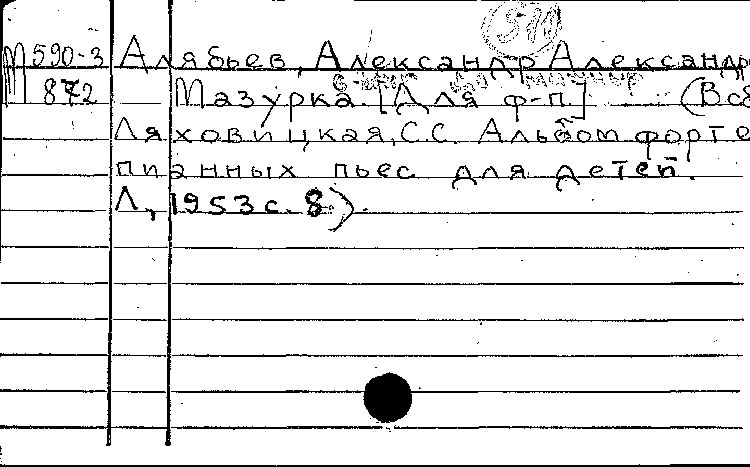 М 590-3 Алябьев, Александр Александро
872 Мазурка. [Для ф-п] (В сб
Ляховицкая, С.С. Альбом форте
пианных пьес для детей.
Л, 1953 с. 8.).